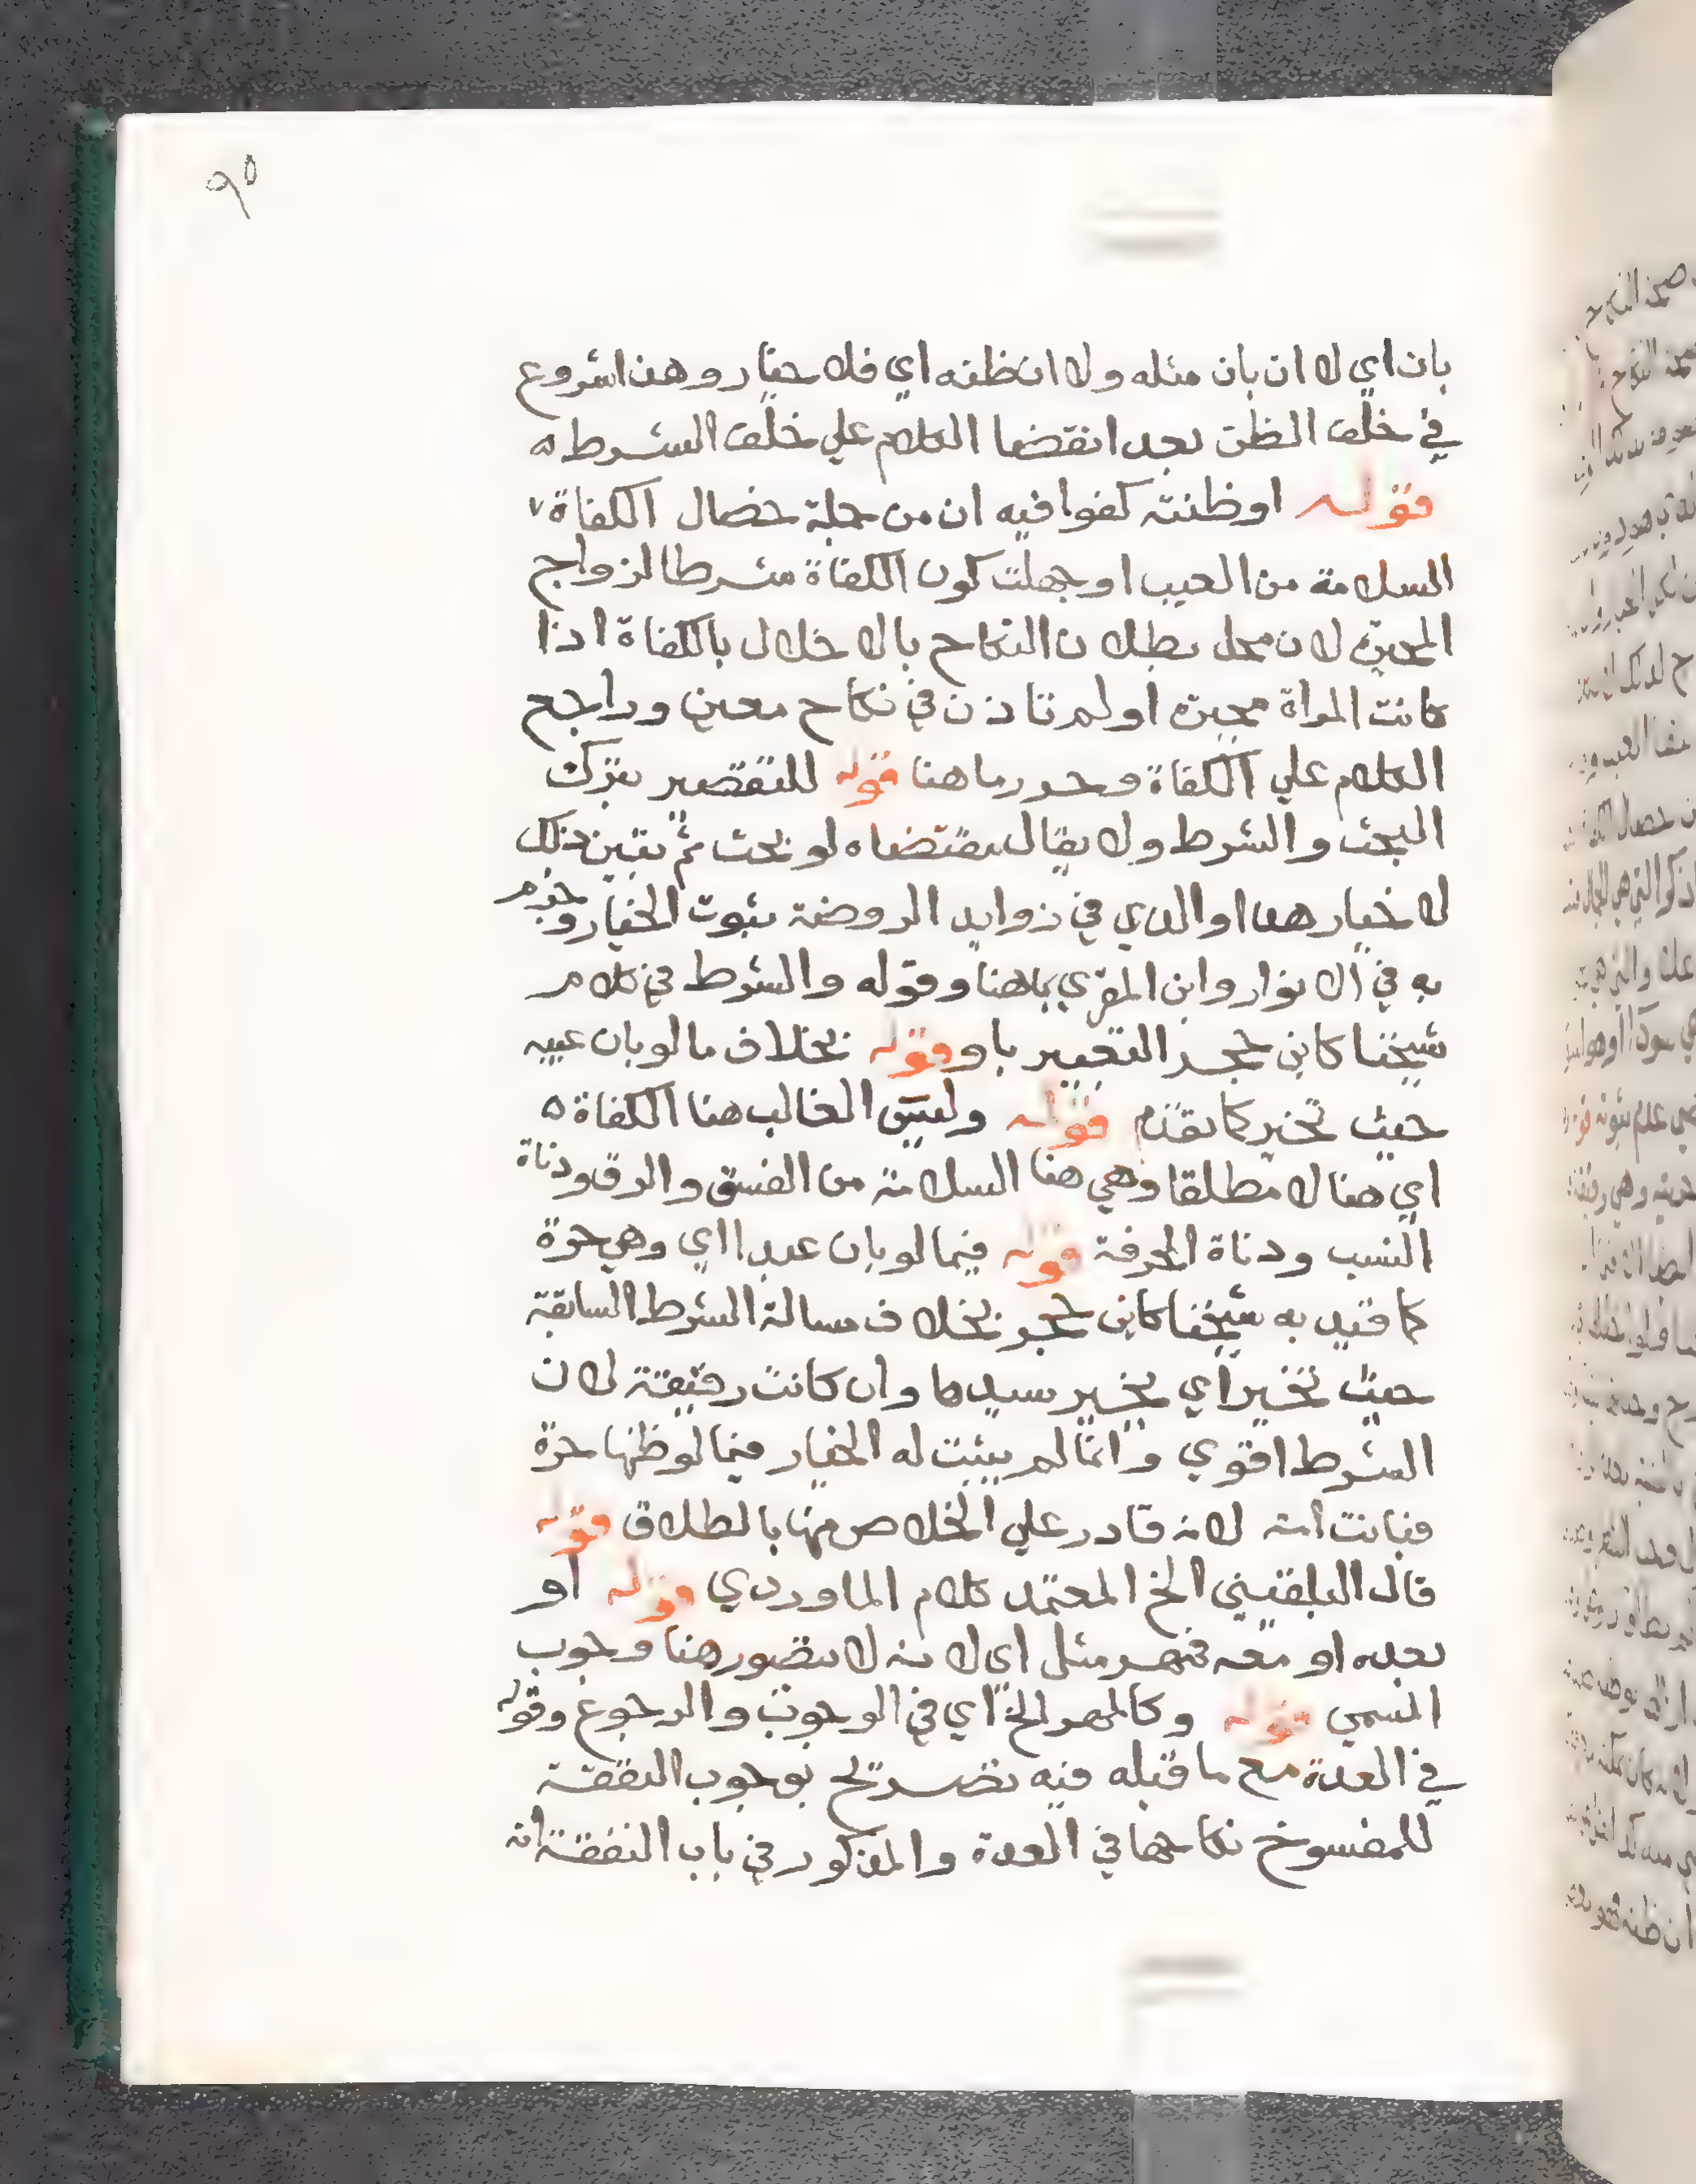 ٩٥
بان اي لا ان بان مثله ولا ان ظنه اي فلا خيار وهذا شروع
في خلف الظن بعد انقضا الكلام علي خلف الشرط ه
قوله او ظنته كفوا فيه ان من جملة خصال الكفاة
السلامة من العيب او جهلت كون الكفاة شرطا لزواج
المجبرة لان محل بطلان النكاح بالاخلال بالكفاة اذا
كانت المراة مجبرة او لم تاذن في نكاح معين وراجع
الكلام علي الكفاة وحرر ما هنا قوله للتقصير بترك
البحث والشرط ولا يقال مقتضاه لو بحث ثم تبين ذلك
لا خيار هذا والذي في زوايد الروضة ثبوت الخيار وجزم
به في الانوار وابن المقري بما هنا وقوله والشرط في كلام
شيخنا كابن حجر التعبير باو وقوله بخلاف ما لو بان عيبه
حيث تخير كما تقدم قوله وليس الغالب هنا الكفاة ه
اي هنا لا مطلقا وهي هنا السلامة من الفسق والرق ودناة
النسب ودناة الحرفة قوله فيما لو بان عبدا اي وهي حرة
كما قيد به شيخنا كابن حجر بخلاف مسالة الشرط السابقة
حيث تخير اي يخير سيدها وان كانت رقيقة لان
الشرط اقوي وانما لم يثبت له الخيار فيما لو ظنها حرة
فبانت امة لانه قادر علي الخلاص منها بالطلاق قوله
قال البلقيني الخ المعتمد كلام الماوردي قوله او
بعده او معه فمهر مثل اي لانه لا يتصور هنا وجوب
المسمي قوله وكالمهر الخ اي في الوجوب والرجوع وقوله
في العدة مع ما قبله فيه تصريح بوجوب النفقة
للمفسوخ نكاحها في العدة والمذكور في باب النفقة انه